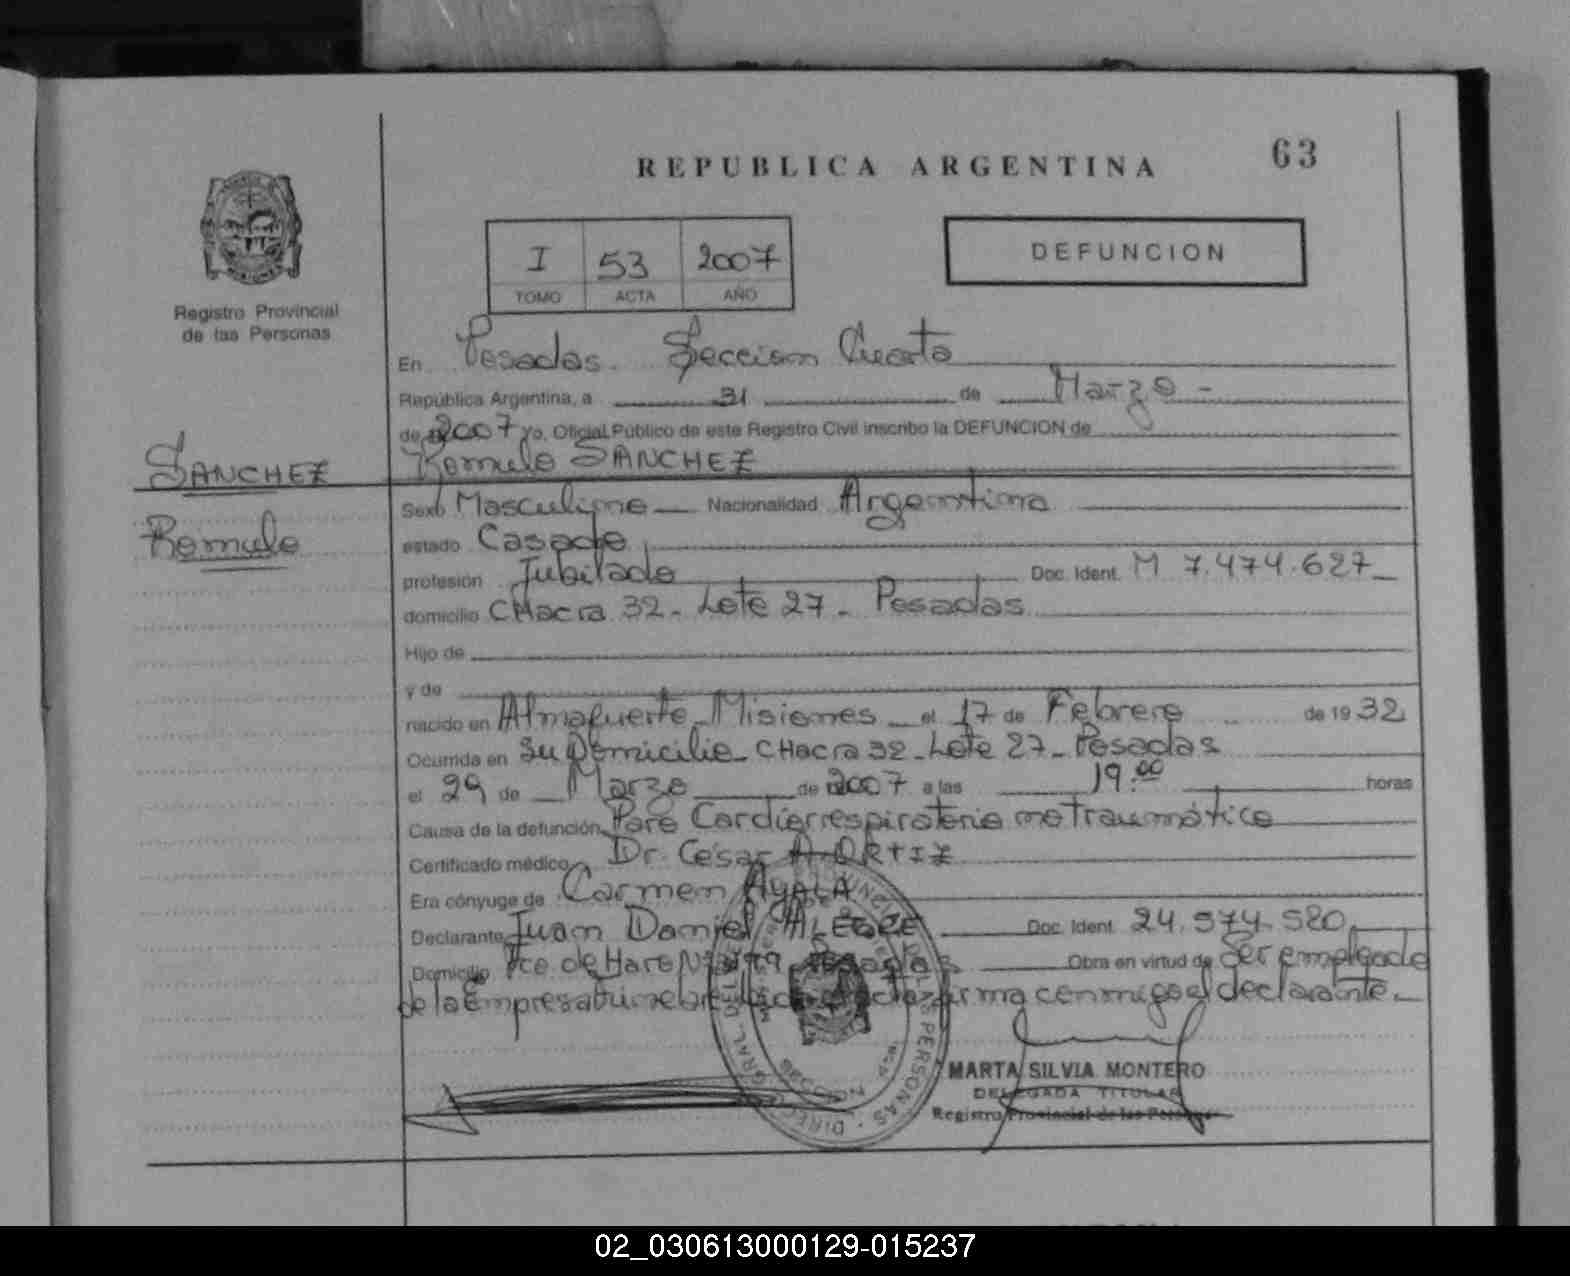 REPUBLICA ARGENTINA
63
I 53 2007
TOMO ACTA AÑO
DEFUNCION
Registro Provincial
de las Personas
En Posadas. Seccion Cuarta
República Argentina, a 31 de Marzo -
de 2007 yo, Oficial Público de este Registro Civil inscribo la DEFUNCION de
Romulo SANCHEZ
SANCHEZ
Romulo
Sexo Masculino Nacionalidad Argentina
estado Casado
profesión Jubilado Doc. Ident. M 7.474.627
domicilio CHacra 32 - Lote 27 - Posadas
Hijo de
y de
nacido en Almafuerte - Misiones el 17 de Febrero de 19 32
Ocurrida en Su Domicilio - CHacra 32 - Lote 27 - Posadas
el 29 de Marzo de 2007 a las 19.00 horas
Causa de la defunción Paro Cardiorrespiratorio no Traumático
Certificado médico Dr. César A. ORTIZ
Era cónyuge de Carmen AYALA
Declarante Juan Daniel ALEGRE Doc. Ident. 24.574.520
Domicilio Pco. de Haro Nº Posadas Obra en virtud de Ser empleado
de la Empresa Funebre acta firma conmigo el declarante.
MARTA SILVIA MONTERO
DELEGADA TITULAR
Registro Provincial de las Personas
02_030613000129-015237